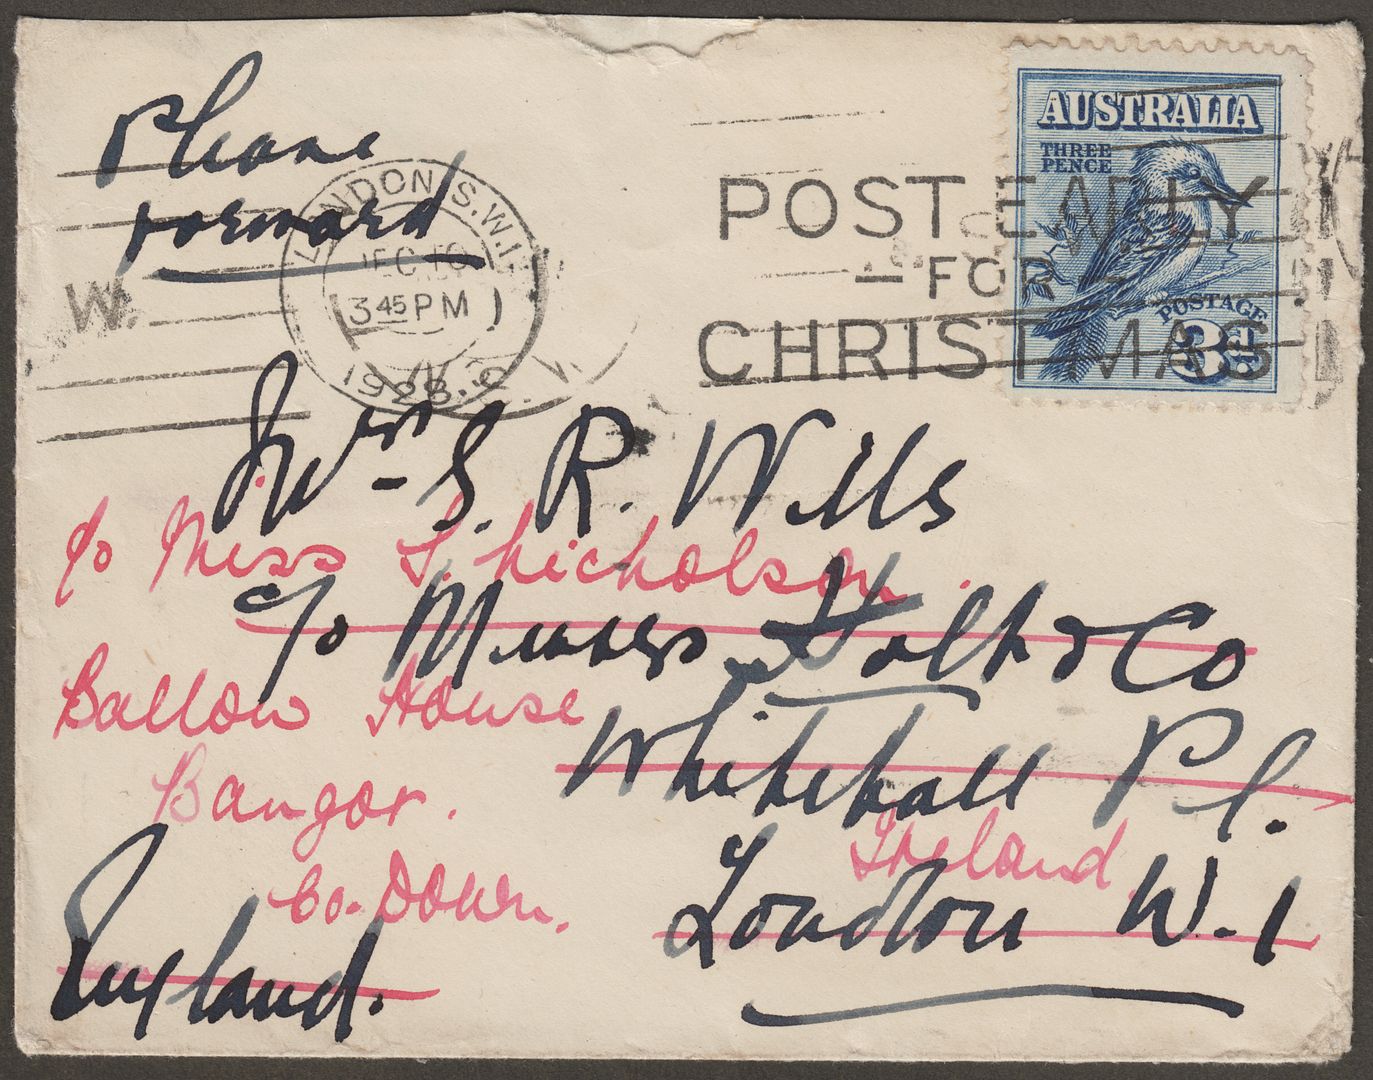 Please
forward
LONDON S.W.1
DEC 10
3 45 PM
1928
W.
POST EARLY
FOR
CHRISTMAS
AUSTRALIA
THREE
PENCE
POSTAGE
3d
S. R. Wills
c/o Miss S. Nicholson.
c/o Messrs Holt & Co
Ballow House
Whitehall Pl.
Bangor.
Ireland.
Co. Down.
London W.1
England.